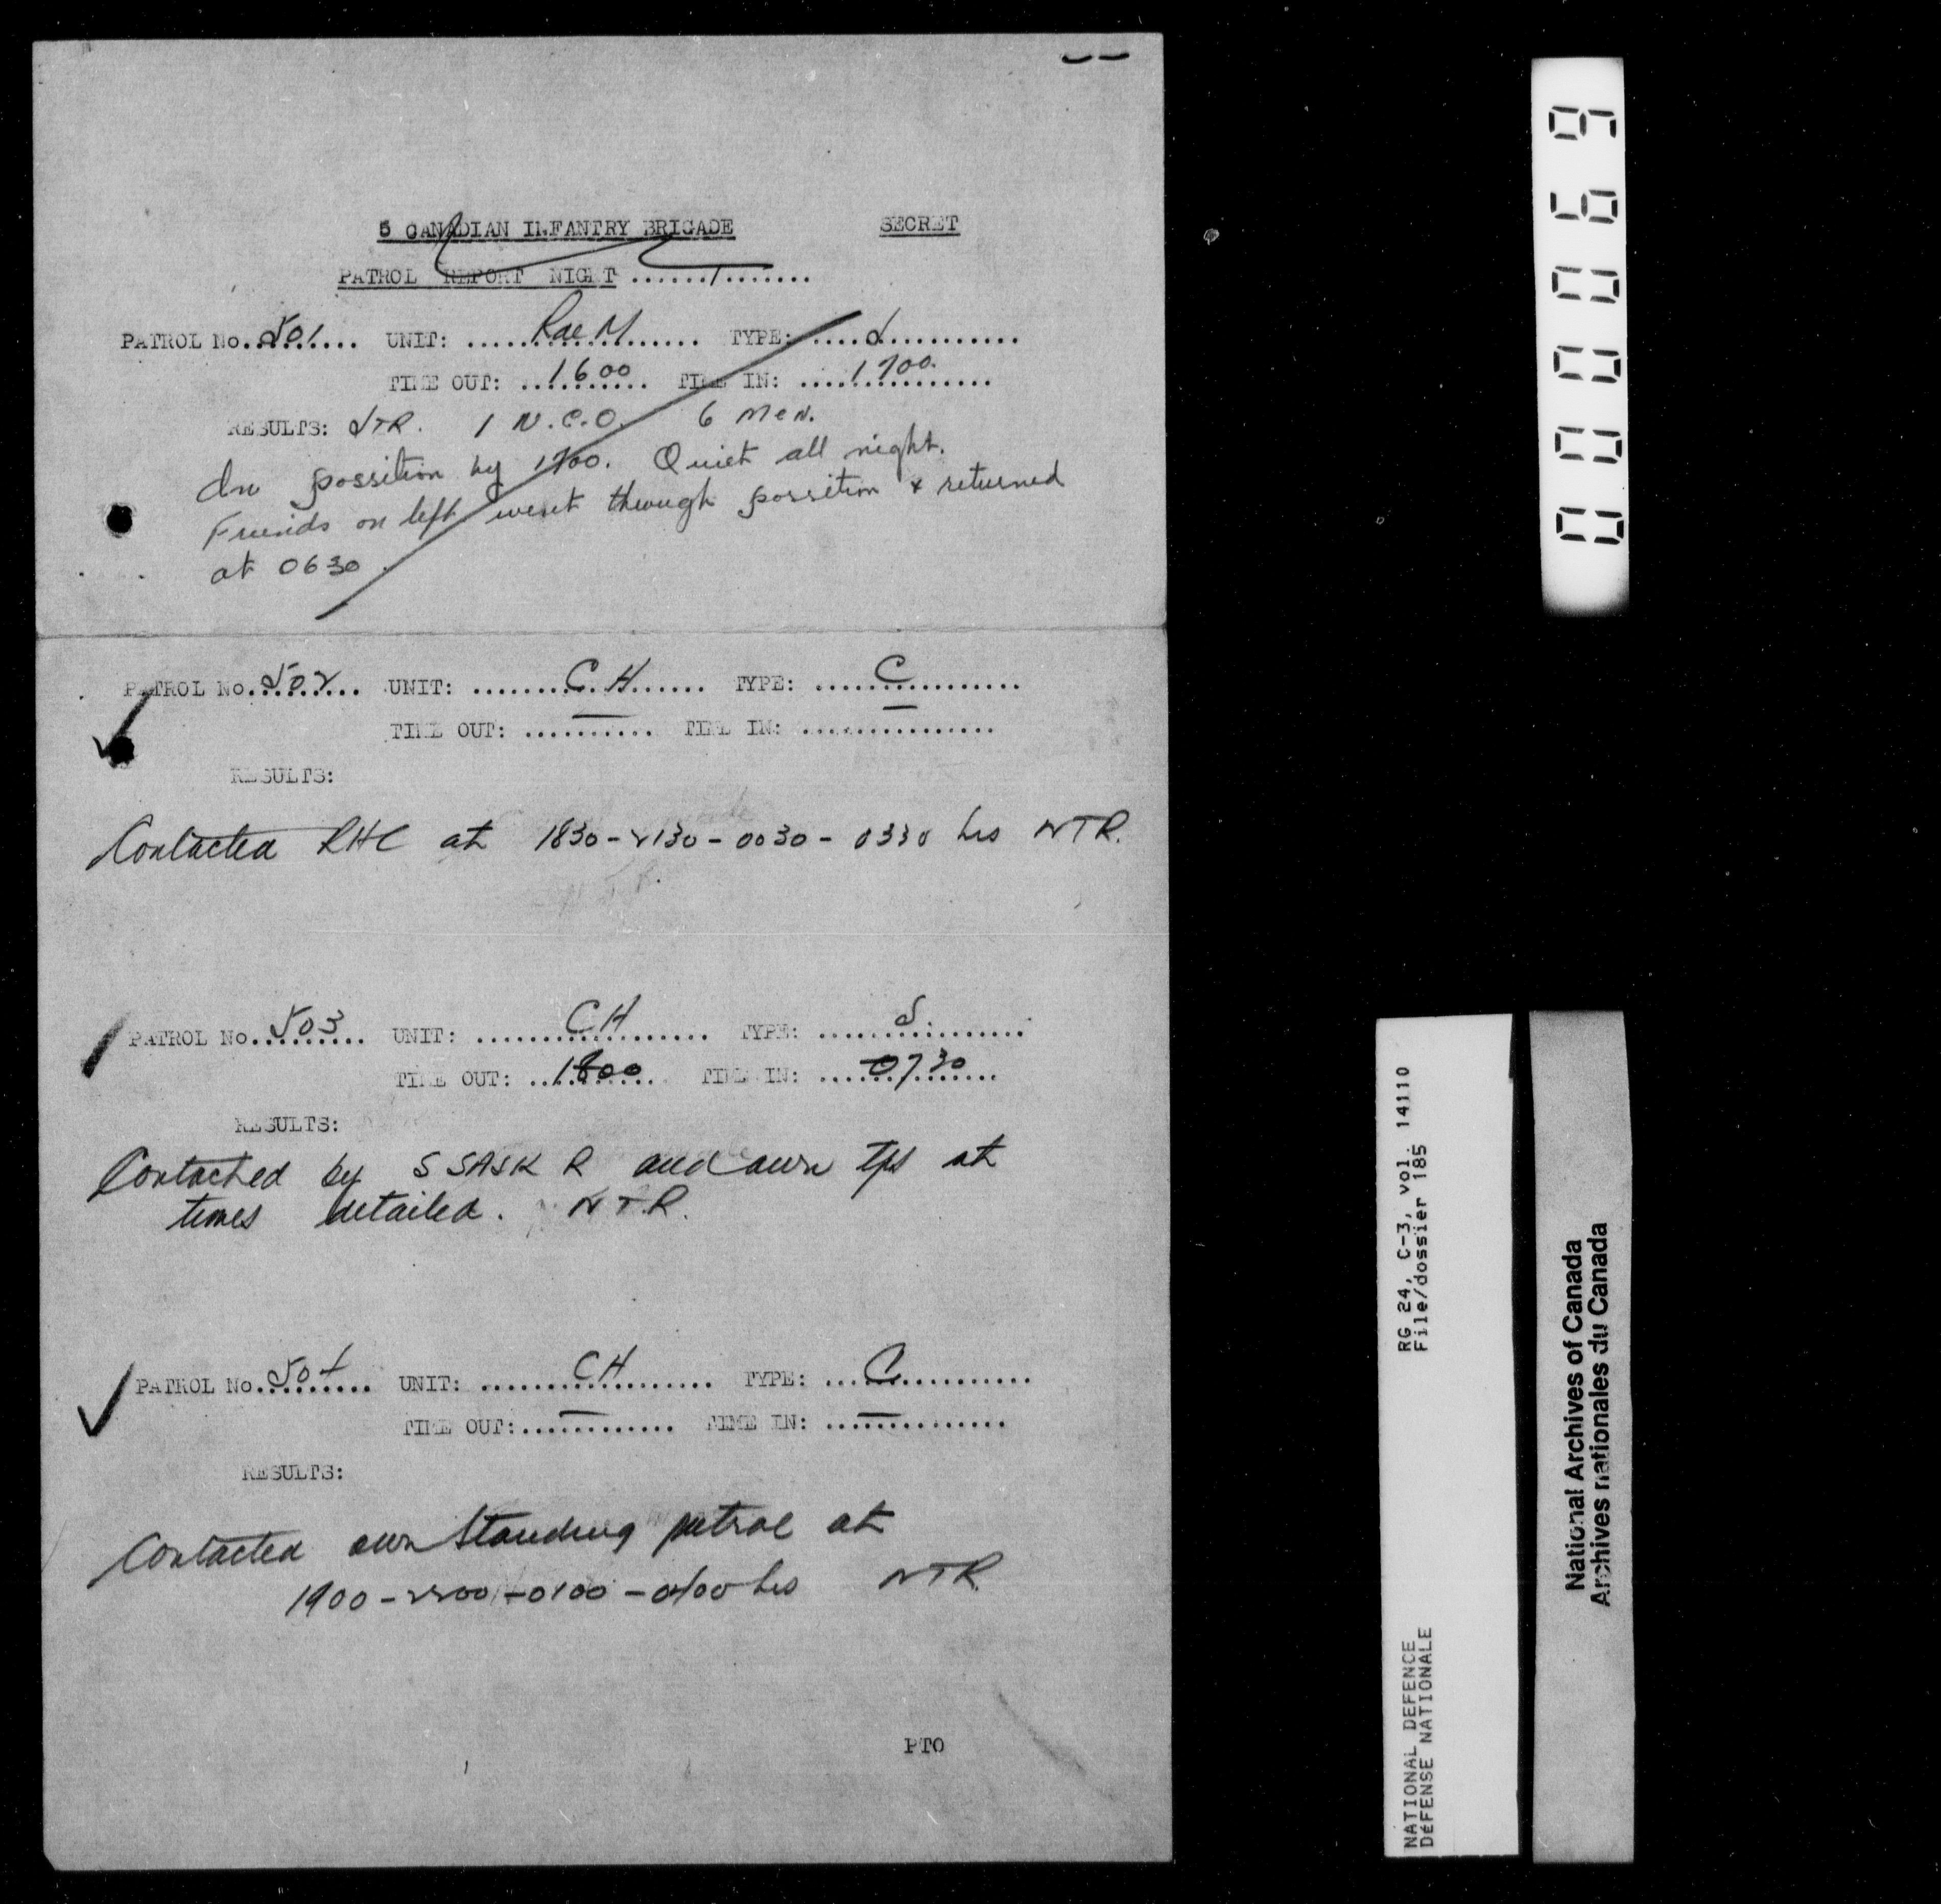 5 CANADIAN INFANTRY BRIGADE SECRET
PATROL REPORT NIGHT ..............
PATROL No. 501 UNIT: R de M TYPE: S
TIME OUT: 1600 TIME IN: 1700.
RESULTS: 1 N.C.O. 6 men.
In possition by 1700. Quiet all night.
Friends on left went through possition & returned
at 0630.
PATROL No. 502 UNIT: C H TYPE: C
TIME OUT: — TIME IN: —
RESULTS:
Contacted RHC at 1830-2130-0030-0330 hrs NTR.
PATROL No. 503 UNIT: CH TYPE: S.
TIME OUT: 1800 TIME IN: 0730
RESULTS:
Contacted by S SASK R and own tps at
times detailed. NTR.
PATROL No. 504 UNIT: CH TYPE: C
TIME OUT: — TIME IN: —
RESULTS:
Contacted own Standing patrol at
1900-2200-0100-0400 hrs NTR.
PTO
000069
RG 24, C-3, vol. 14110
File/dossier 185
NATIONAL DEFENCE
DéFENSE NATIONALE
National Archives of Canada
Archives nationales du Canada